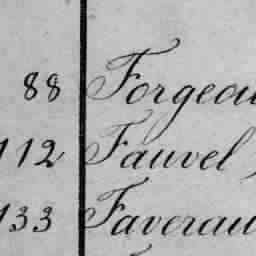 88 Forgeau
112 Fauvel,
133 Faverau